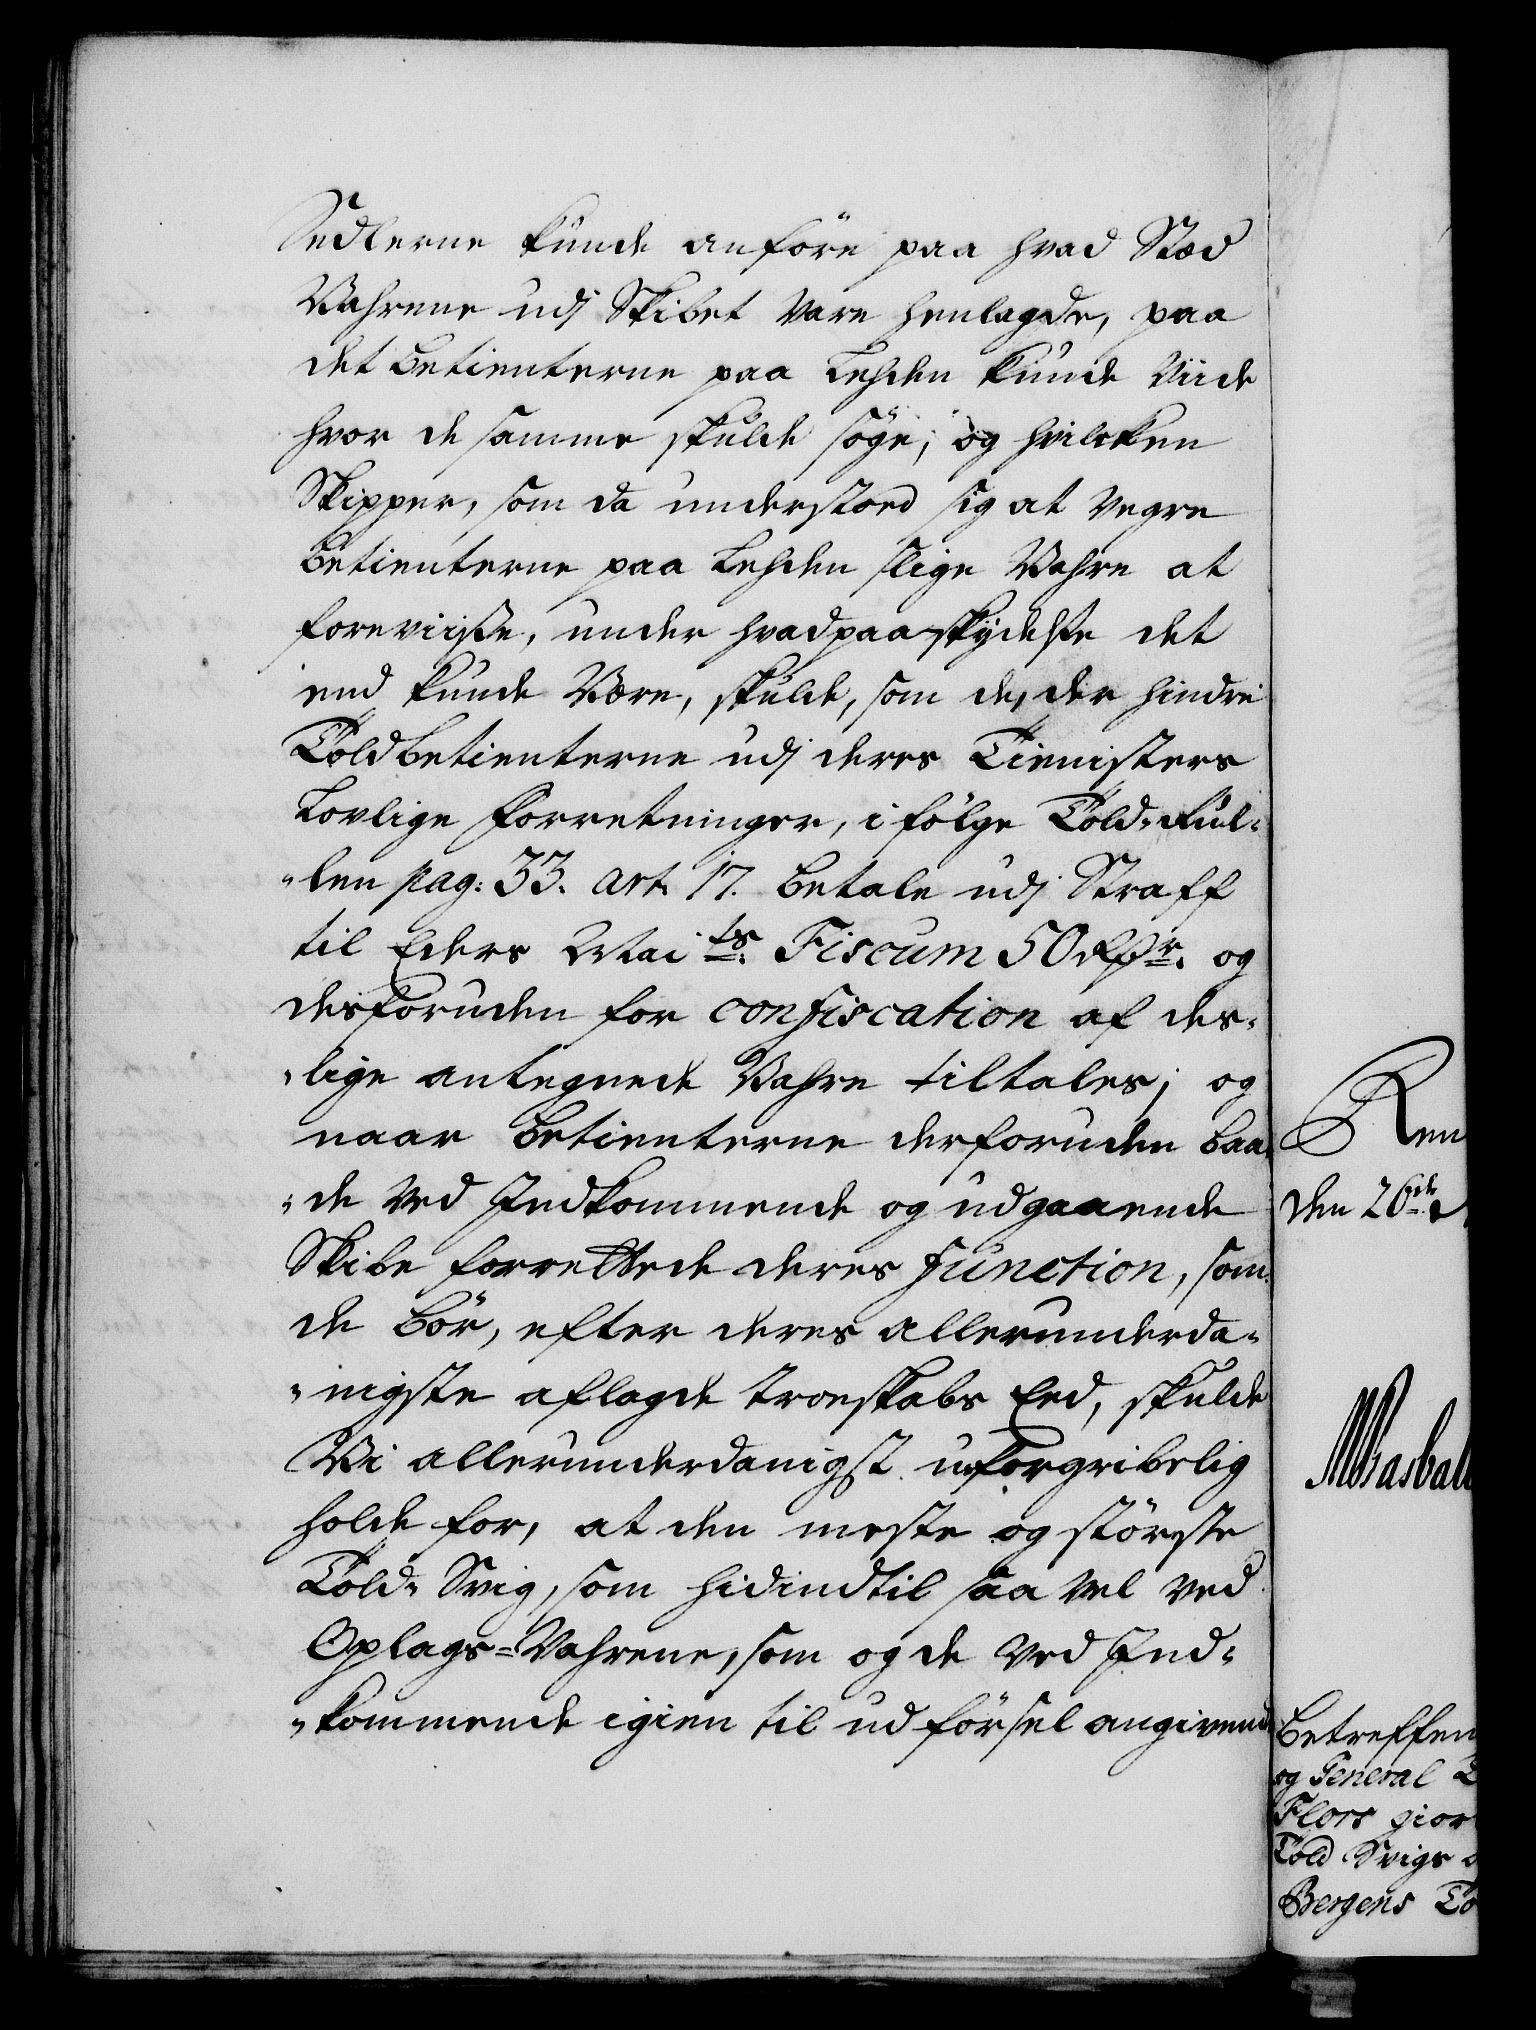 Sedlerne kunde anföre paa hvad Stæd
Vahrene udj Skibet vare henlagde, paa
det Betienterne paa Rehden kunde viide
hvor de samme skulde söge; og hvilcken
Skipper, som da understoed sig at vegre
Betienterne paa Rehden slige Vahre at
foreviisse, under hvad paaskydelse det
end kunde være, skulde, som de, der hindre
Toldbetienterne udj deres Tienisters
Lovlige Forretninger, i fölge Told-Rul-
-len pag: 33. art. 17. betale udj Straff
til Eders Maits. Fiscum 50 Rdr. og
desforuden for confiscation af des-
-lige antegnede Vahre tiltales; og
naar Betienterne derforuden baa-
-de ved Indkommende og udgaaende
Skibe forrettede deres Function, som
de bör, efter deres allerunderda-
-nigste aflagde troeskabs Eed, skulde
Vi allerunderdanigst uforgribelig
holde for, at den meste og störste
Told-Svig, som hidindtil saa vel ved
Oplags-Vahrene, som og de ved Ind-
-kommende igien til udförsel angivende
Ren
den 26de
Betreffen
og General
Flors gior
Told Svigs
Bergens To